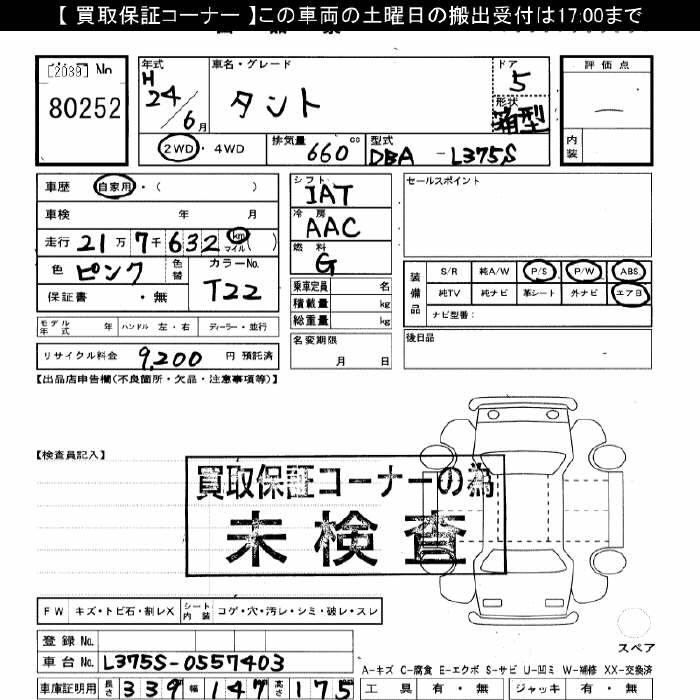 【 買取保証コーナー 】この車両の土曜日の搬出受付は17:00まで
[2039] No
80252
年式
H
24
6月
車名・グレード
タント
ドア
5
形状
箱型
評価点
内装
2WD ・ 4WD
排気量 660 cc
型式 DBA - L375S
車歴 自家用・( )
車検 年 月
走行 21万7千632 km マイル ( )
色 ピンク 色替
カラーNo. T22
保証書 ・無
モデル年式 年 ハンドル 左・右 ディーラー・並行
リサイクル料金 9,200 円 預託済
シフト IAT
冷房 AAC
燃料 G
乗車定員 名
積載量 kg
総重量 kg
名変期限
月 日
セールスポイント
装備品
S/R 純A/W P/S P/W ABS
純TV 純ナビ 革シート 外ナビ エアB
ナビ型番:
後日品
【出品店申告欄(不良箇所・欠品・注意事項等)】
【検査員記入】
買取保証コーナーの為
未検査
FW キズ・トビ石・割レX シート内装 コゲ・穴・汚レ・シミ・破レ・スレ
スペア
登録 No.
車台 No. L375S-0557403
車庫証明用 長さ 339 幅 147 高さ 175
A-キズ C-腐食 E-エクボ S-サビ U-凹ミ W-補修 XX-交換済
工具 有・無 ジャッキ 有・無